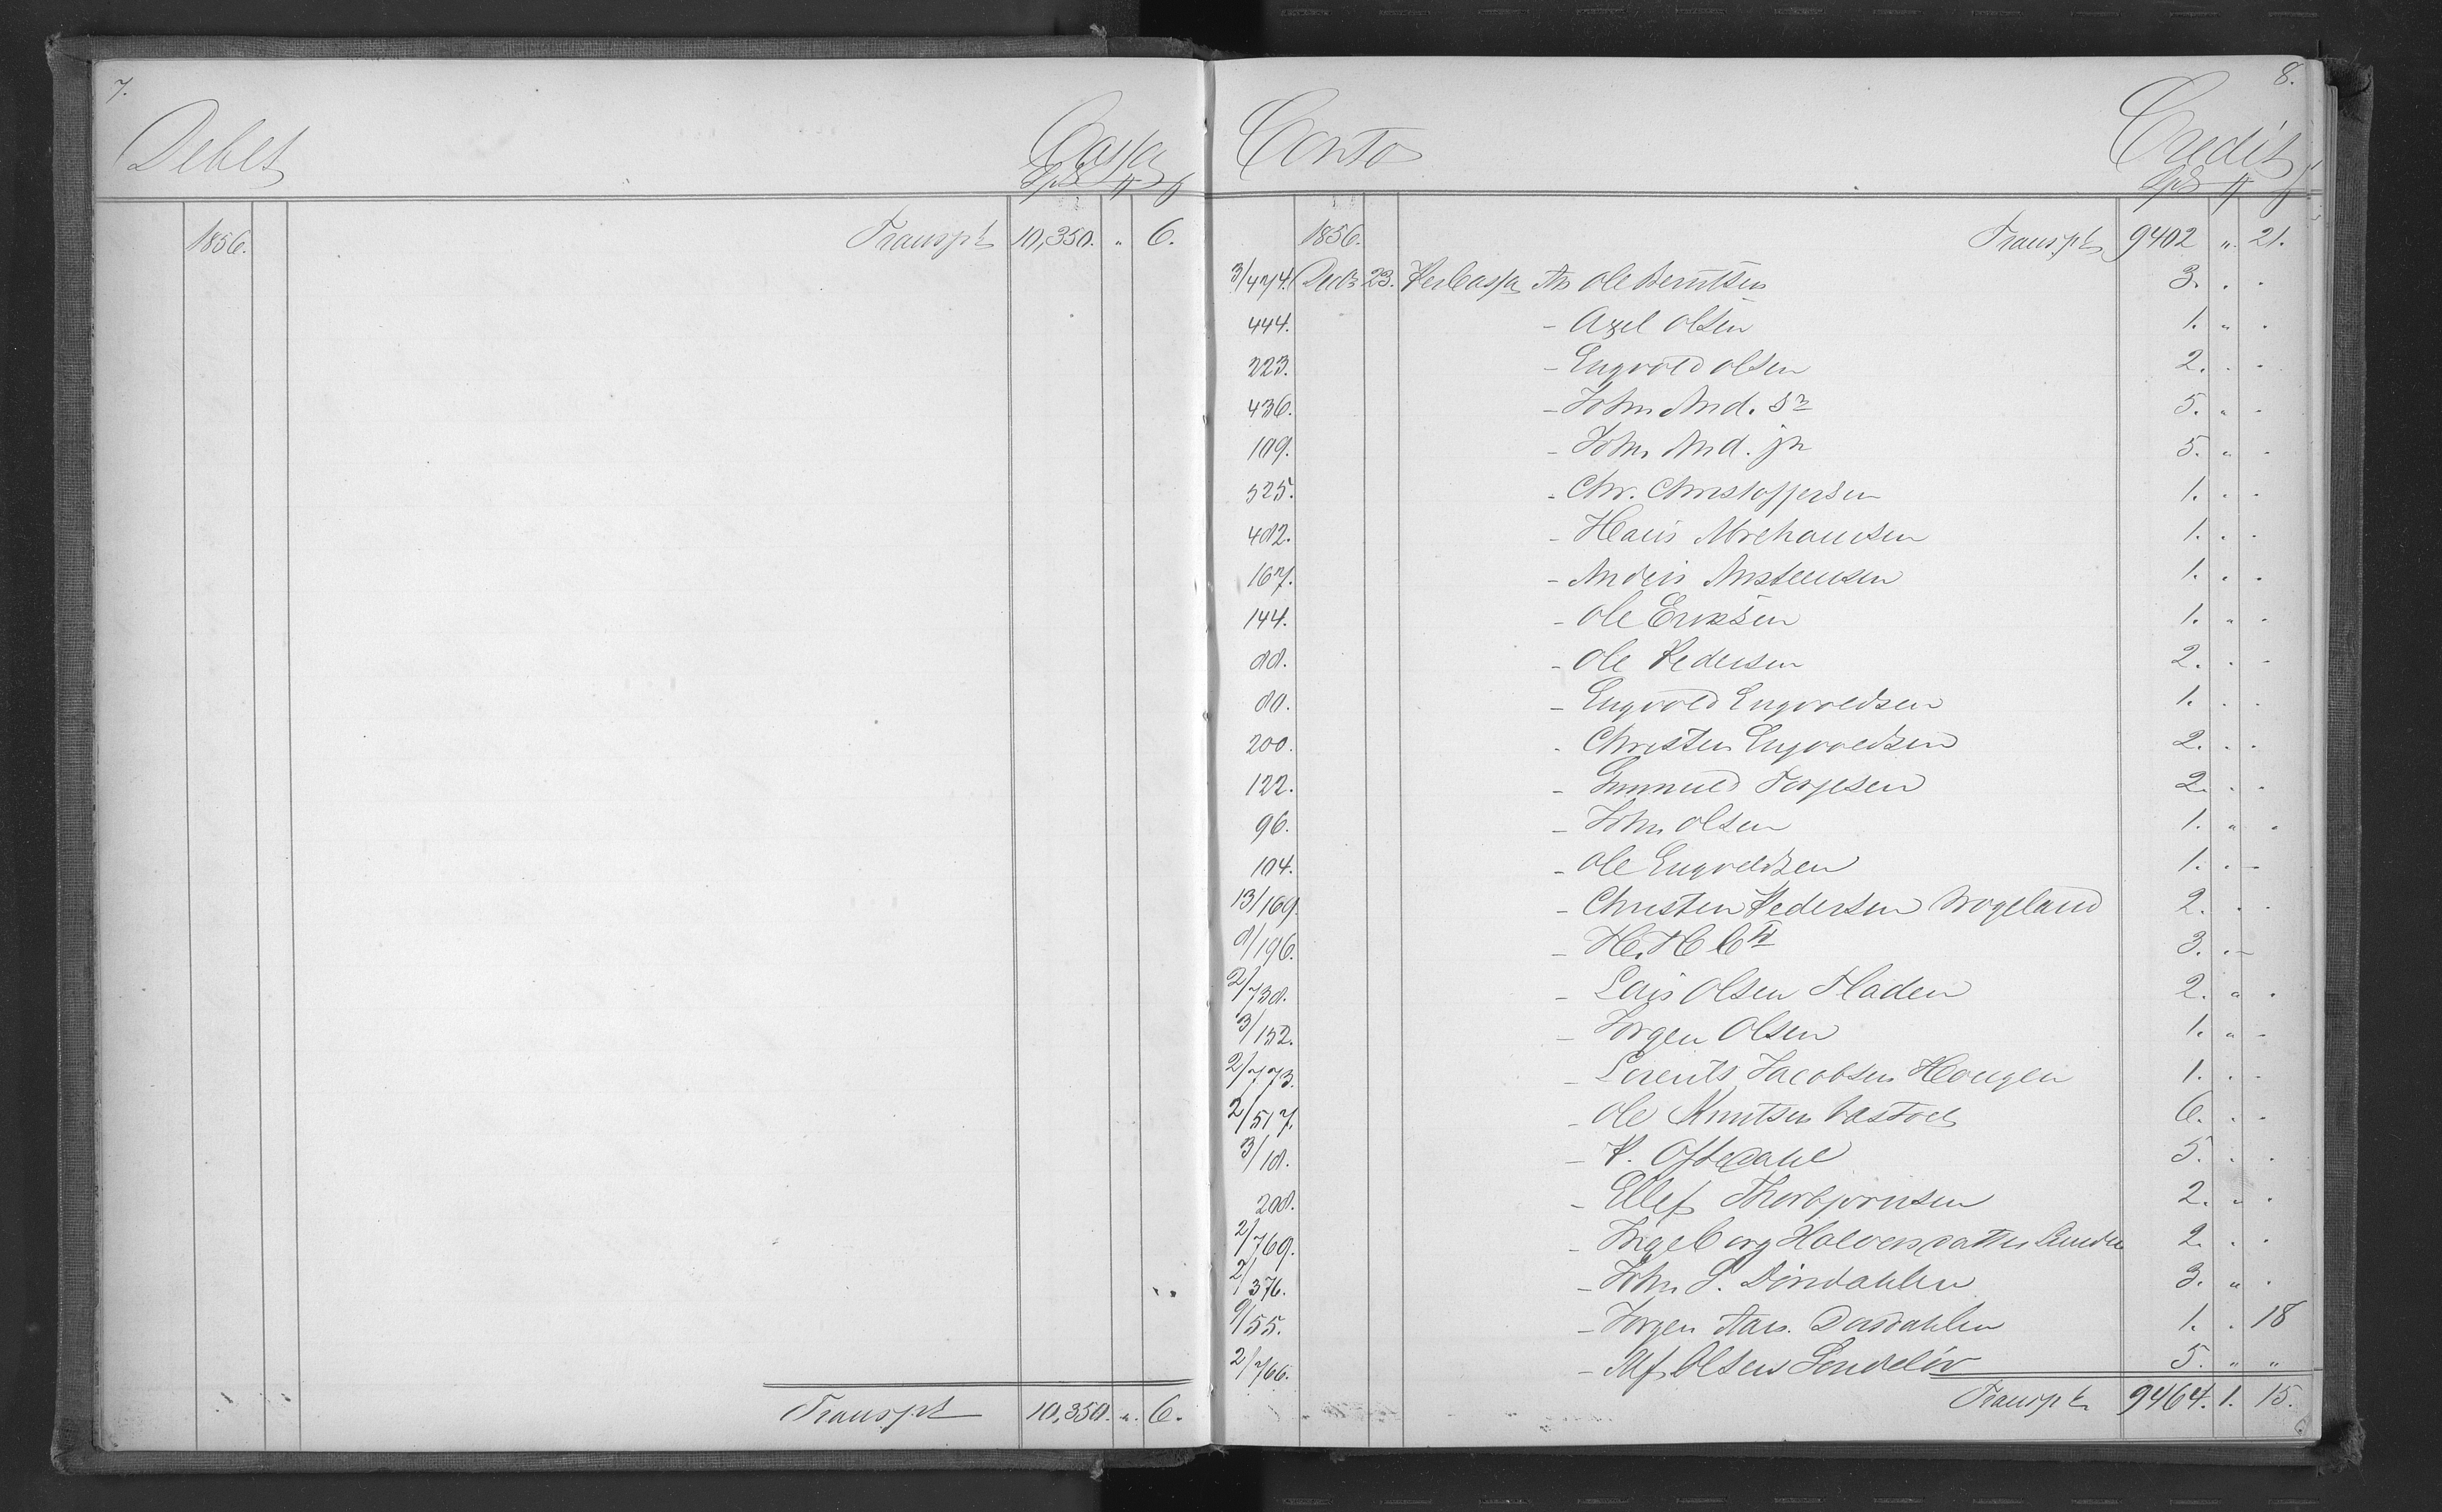 7.
Debet Cassa
Spd
1856. Transpt 10,350. " 6.
Transpt 10,350. " 6.
8.
Conto Credit
Spd
1856. Transpt 9402 " 21.
3/474. Decbr 23. Per Cassa An Ole Berntsen 3. " "
444. - Axel Olsen 1. " "
223. - Engvold Olsen 2. " "
436. - John And. Sr 5. " "
109. - John And. jr 5. " "
525. - Chr. Christoffersen 1. " "
482. - Hans Abrehamsen 1. " "
167. - Anders Anstensen 1. " "
144. - Ole Eriksen 1. " "
88. - Ole Pedersen 2. " "
80. - Engvold Engvoldsen 1. " "
200. - Christen Engvoldsen 2. " "
122. - Gunnuld Torjesen 2. " "
96. - John Olsen 1. " "
104. - Ole Engvoldsen 1. " "
13/169. - Christen Pedersen Wrogeland 2. " "
8/196. - H. H. 3. " "
2/738. - Lars Olsen Fladen 2. " "
3/152. - Jørgen Olsen 1. " "
2/773. - Lorents Jacobsen Hougen 1. " "
2/517. - Ole Knutsen Bastoel 6. " "
3/18. - P. Oftedahl 5. " "
208. - Ellef Thorbjørnsen 2. " "
2/769. - Ingeborg Halvorsdatter 2. " "
2/376. - John S. Dørdahlen 3. " "
9/55. - Jørgen Aars. Dordahlen 1. " 18
2/766. - Alf Olsen Søndeløv 5. " "
Transpt 9464. 1. 15.